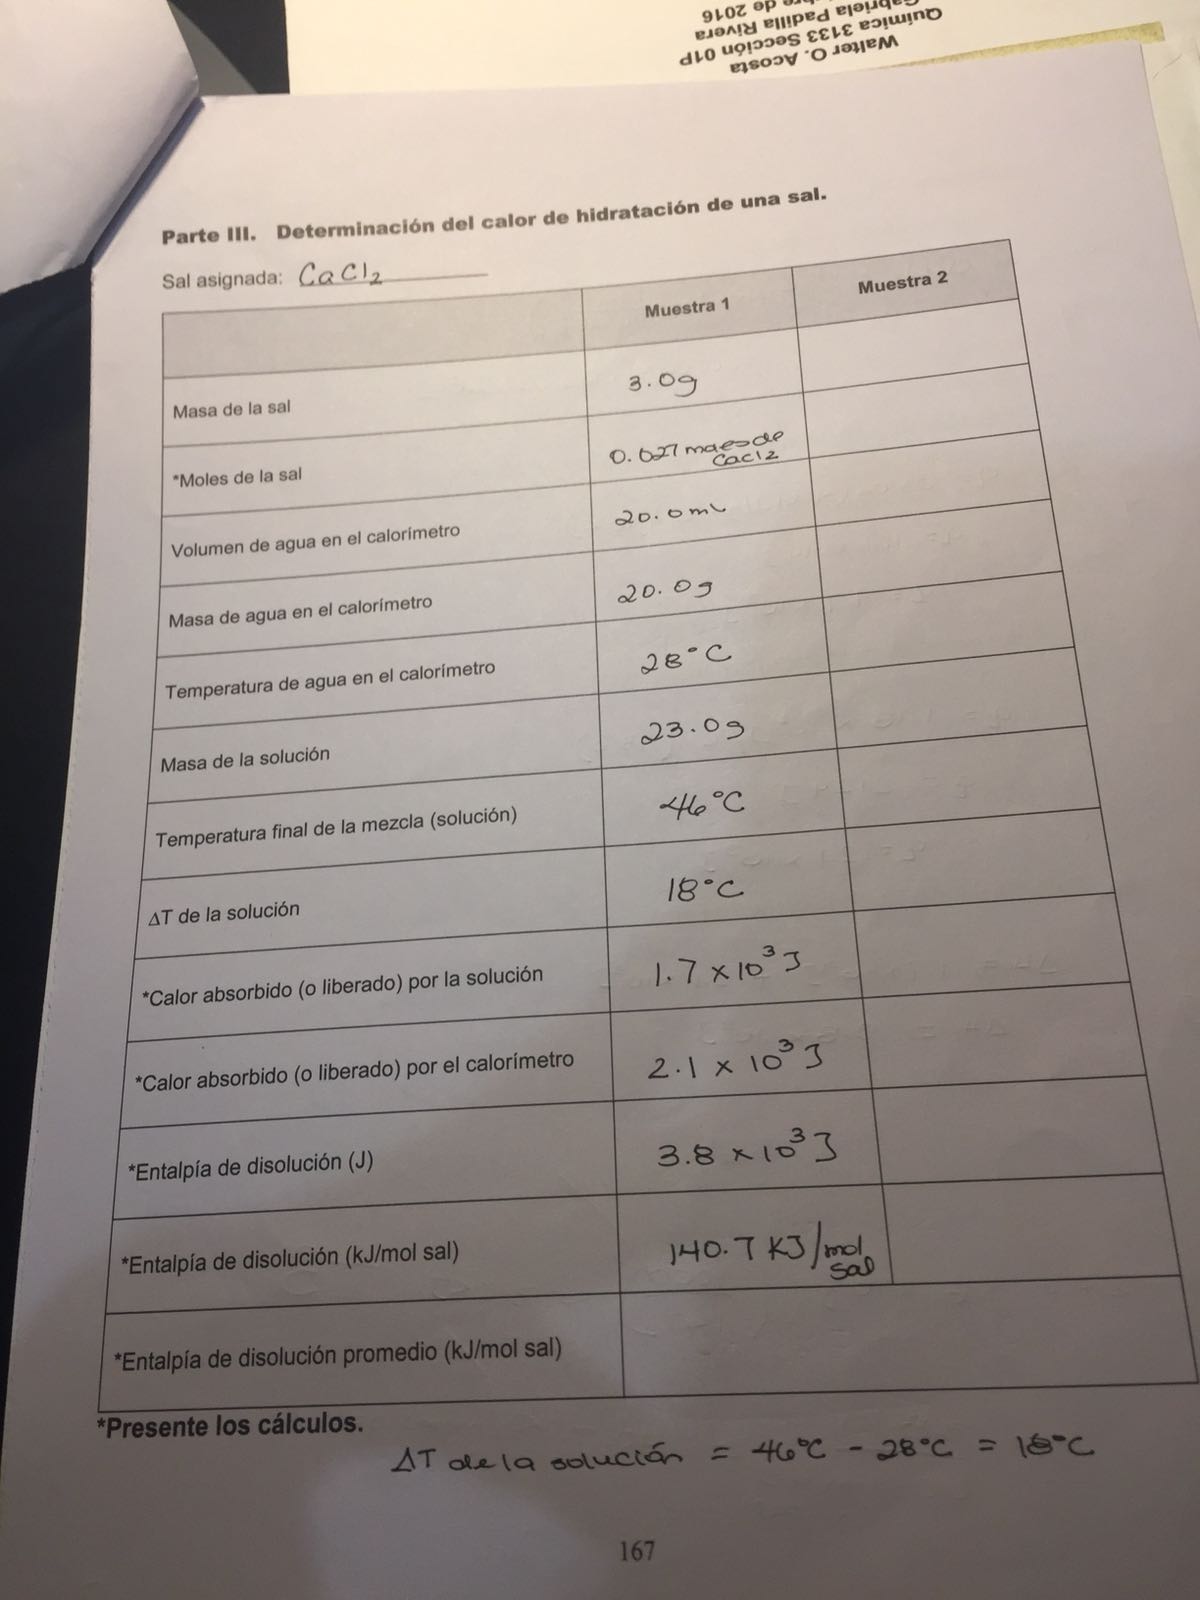 Walter O. Acosta
Química 3133 Sección 01P
Gabriela Padilla Rivera
de 2016
Parte III. Determinación del calor de hidratación de una sal.
Sal asignada: CaCl2
Muestra 1 Muestra 2
Masa de la sal 3.0g
*Moles de la sal 0.027 moles de CaCl2
Volumen de agua en el calorímetro 20.0 mL
Masa de agua en el calorímetro 20.0g
Temperatura de agua en el calorímetro 28°C
Masa de la solución 23.0g
Temperatura final de la mezcla (solución) 46°C
ΔT de la solución 18°C
*Calor absorbido (o liberado) por la solución 1.7 x 10³ J
*Calor absorbido (o liberado) por el calorímetro 2.1 x 10³ J
*Entalpía de disolución (J) 3.8 x 10³ J
*Entalpía de disolución (kJ/mol sal) 140.7 KJ/mol sal
*Entalpía de disolución promedio (kJ/mol sal)
*Presente los cálculos.
ΔT de la solución = 46°C - 28°C = 18°C
167